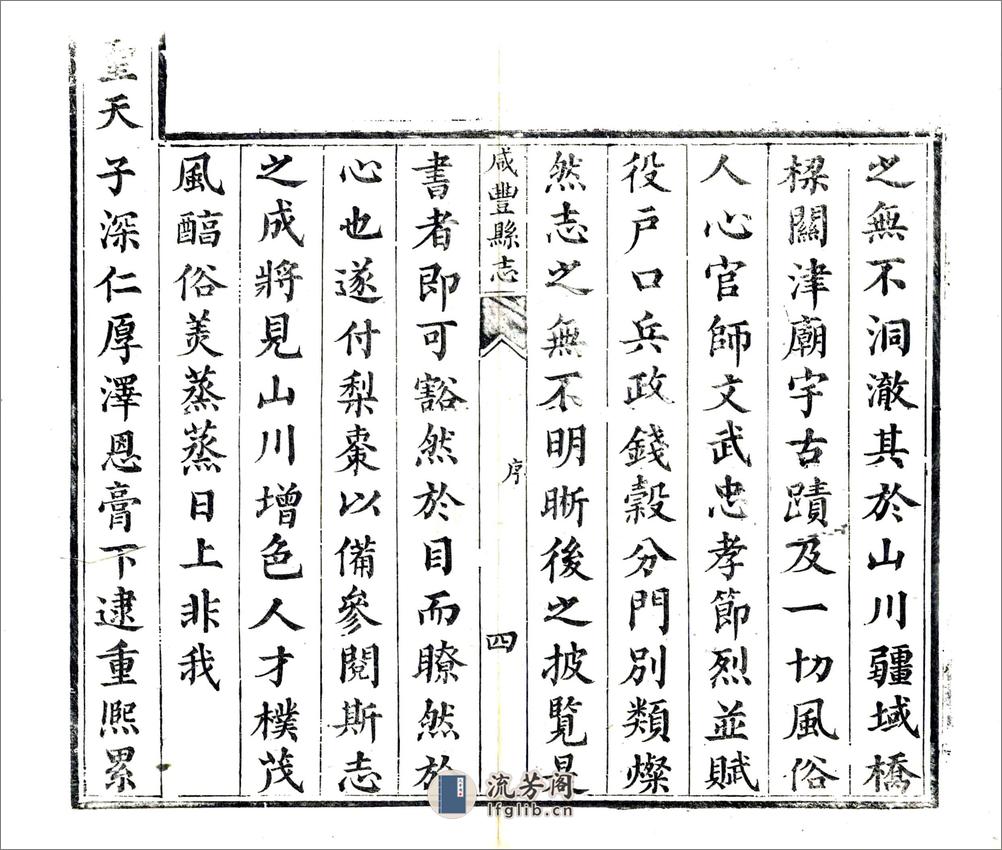 之無不洞澈其於山川疆域橋
樑關津廟宇古蹟及一切風俗
人心官師文武忠孝節烈並賦
役戶口兵政錢穀分門別類燦
然志之無不明晰後之披覽是
咸豐縣志
序
四
書者即可豁然於目而瞭然於
心也遂付梨棗以備參閱斯志
之成將見山川增色人才樸茂
風醕俗美蒸蒸日上非我
聖天子深仁厚澤恩膏下逮重熈累
流芳阁
lfglib.cn